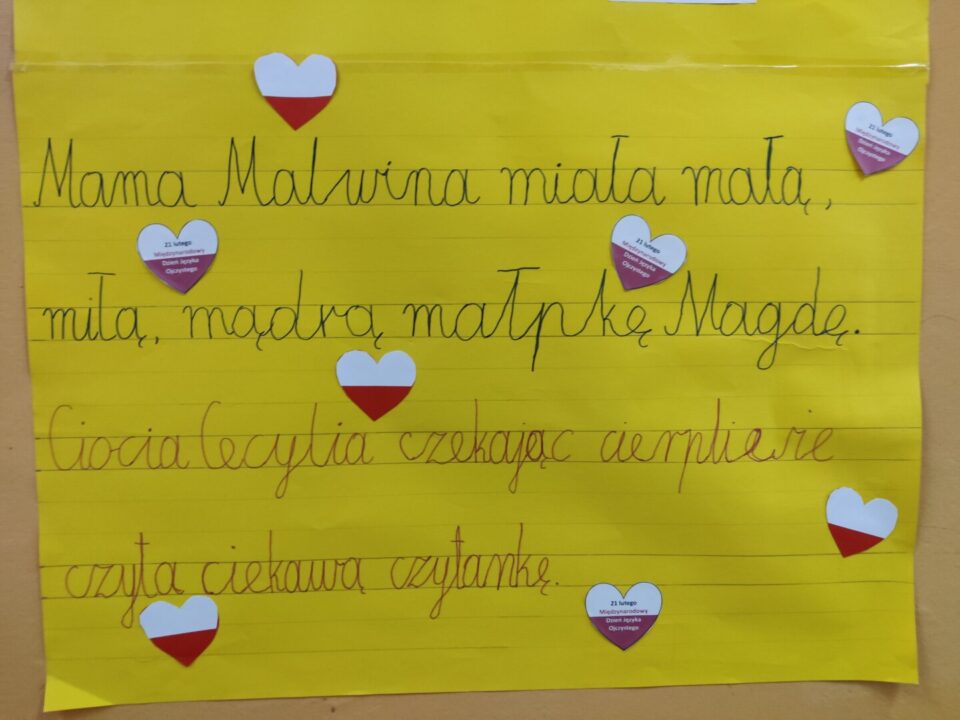 Mama Malwina miała małą,
miłą, mądrą małpkę Magdę.
Ciocia Cecylia czekając cierpliwie
czyta ciekawą czytankę.
21 lutego
Międzynarodowy
Dzień Języka
Ojczystego
21 lutego
Międzynarodowy
Dzień Języka
Ojczystego
21 lutego
Międzynarodowy
Dzień Języka
Ojczystego
21 lutego
Międzynarodowy
Dzień Języka
Ojczystego